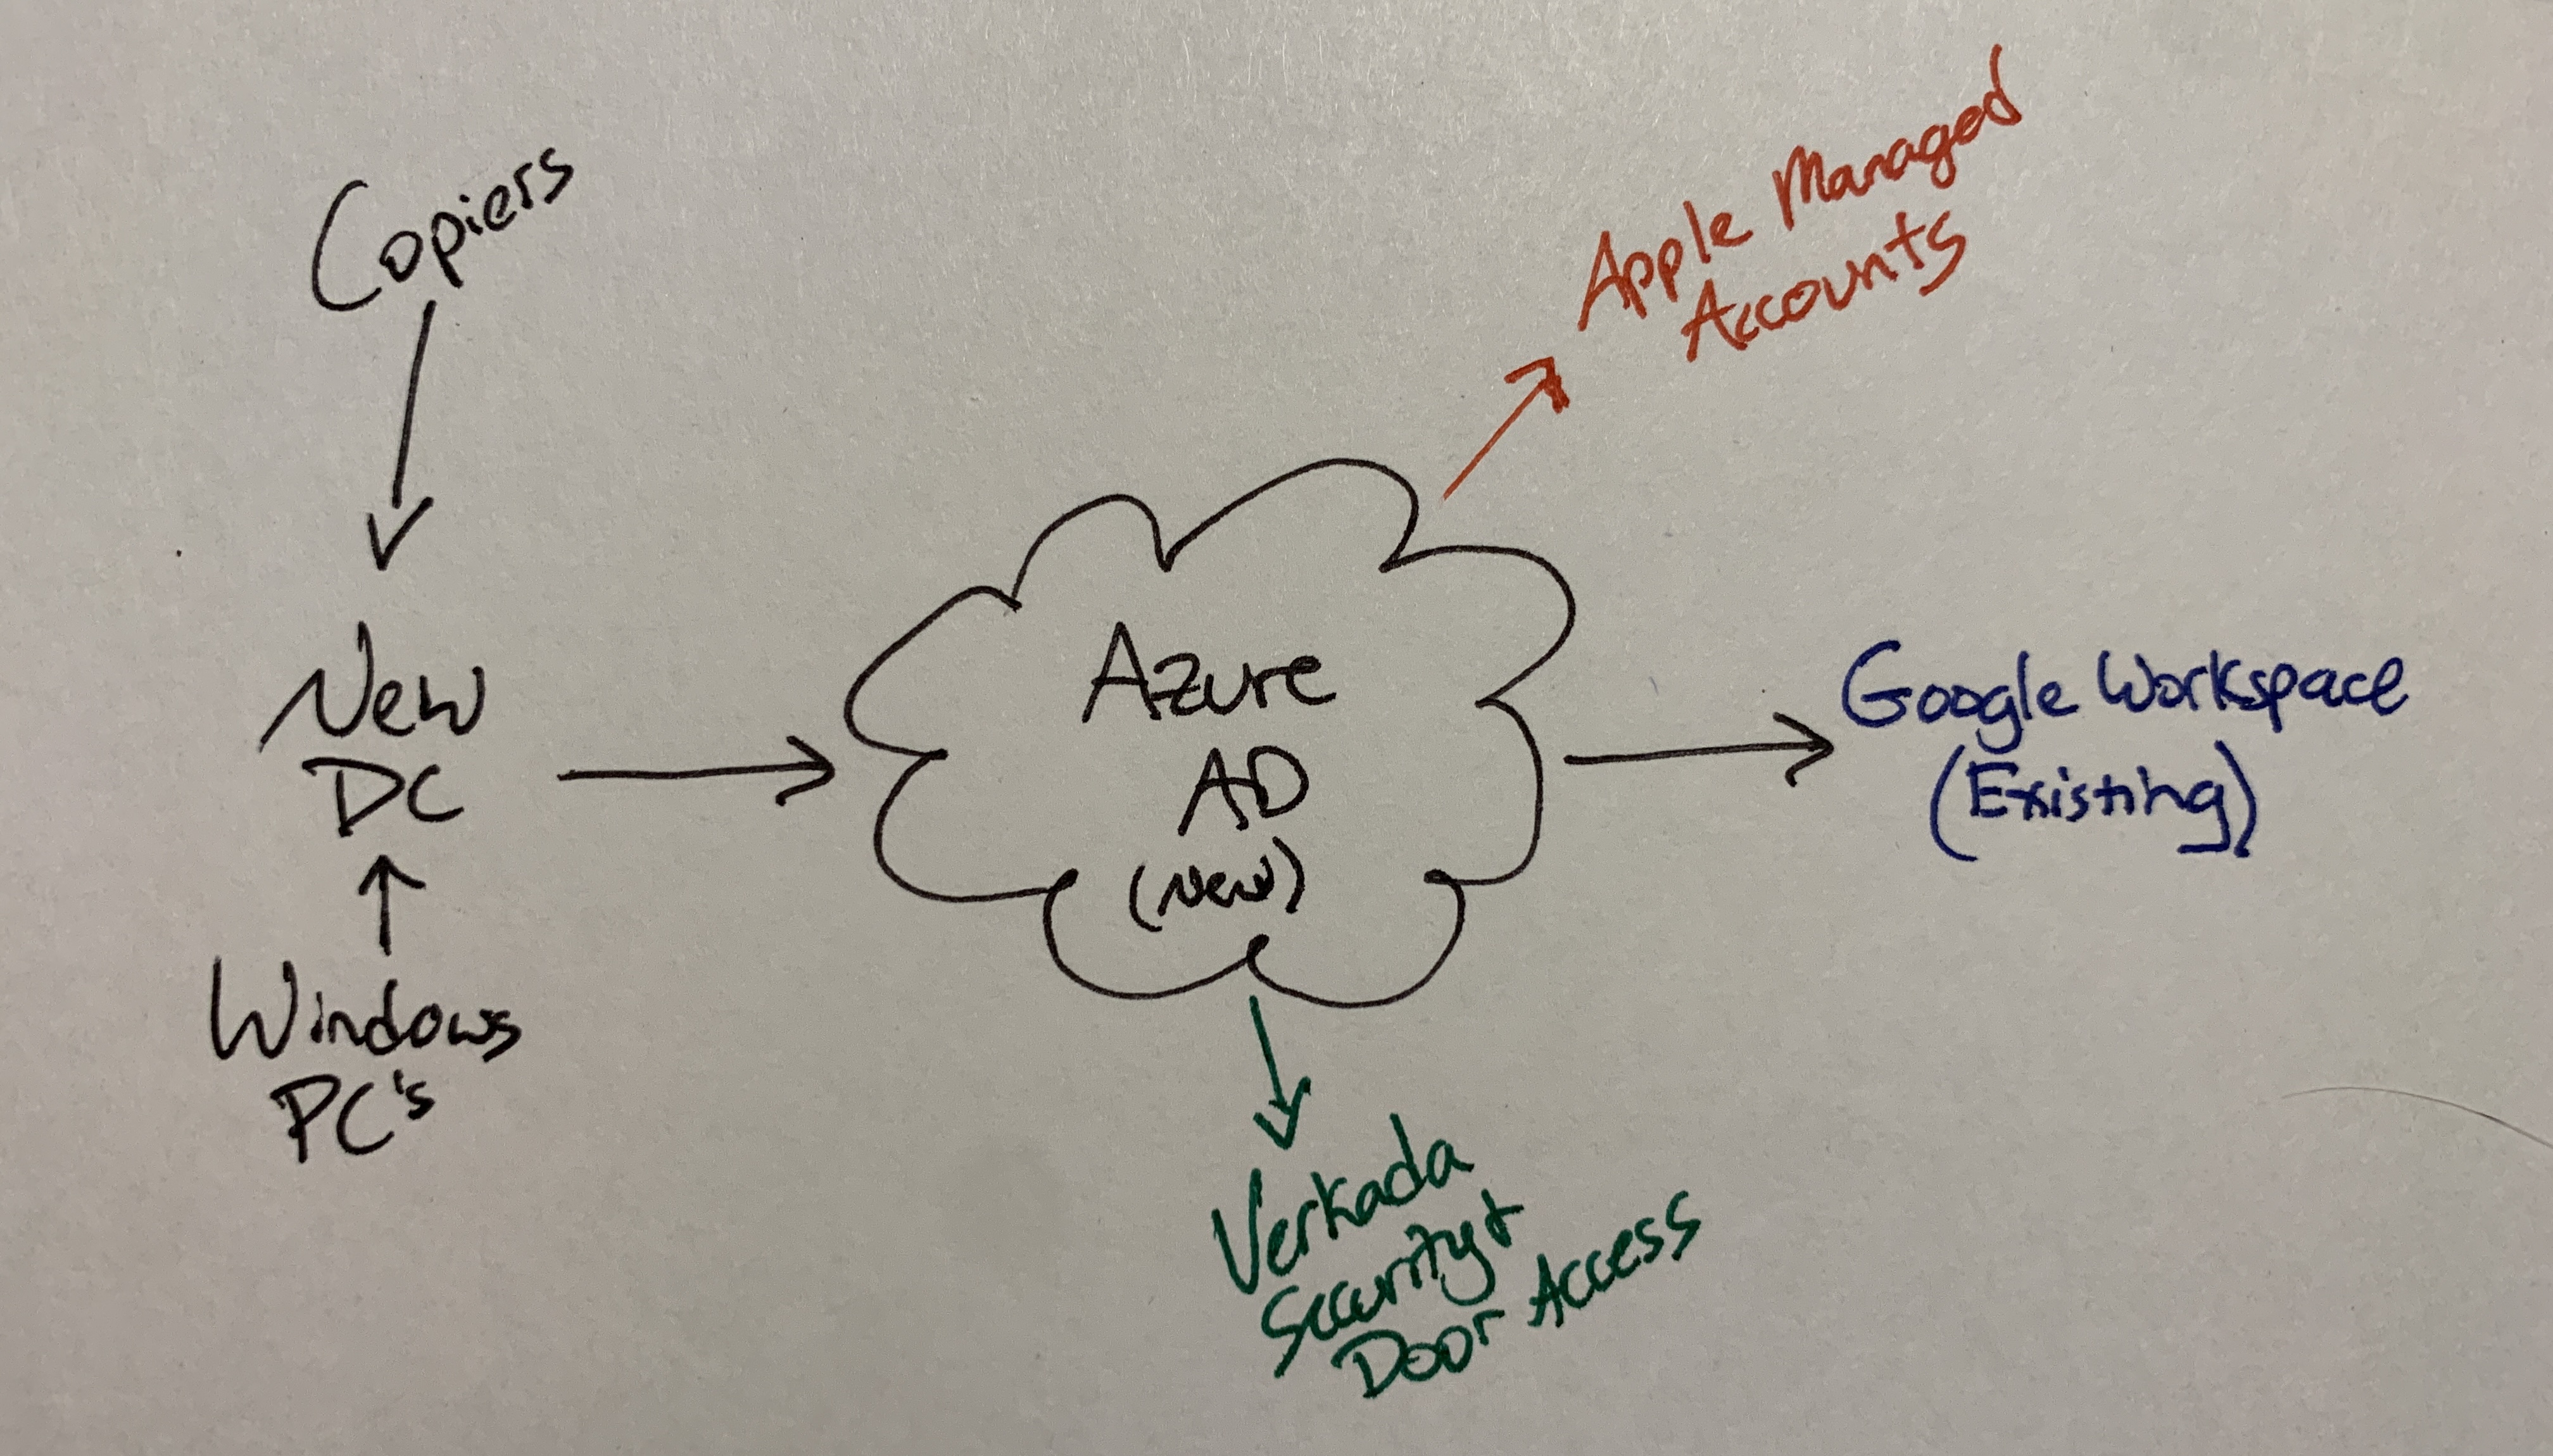 Copiers
New
DC
Windows
PC's
Azure
AD
(New)
Apple Managed
Accounts
Google Workspace
(Existing)
Verkada
Security +
Door Access